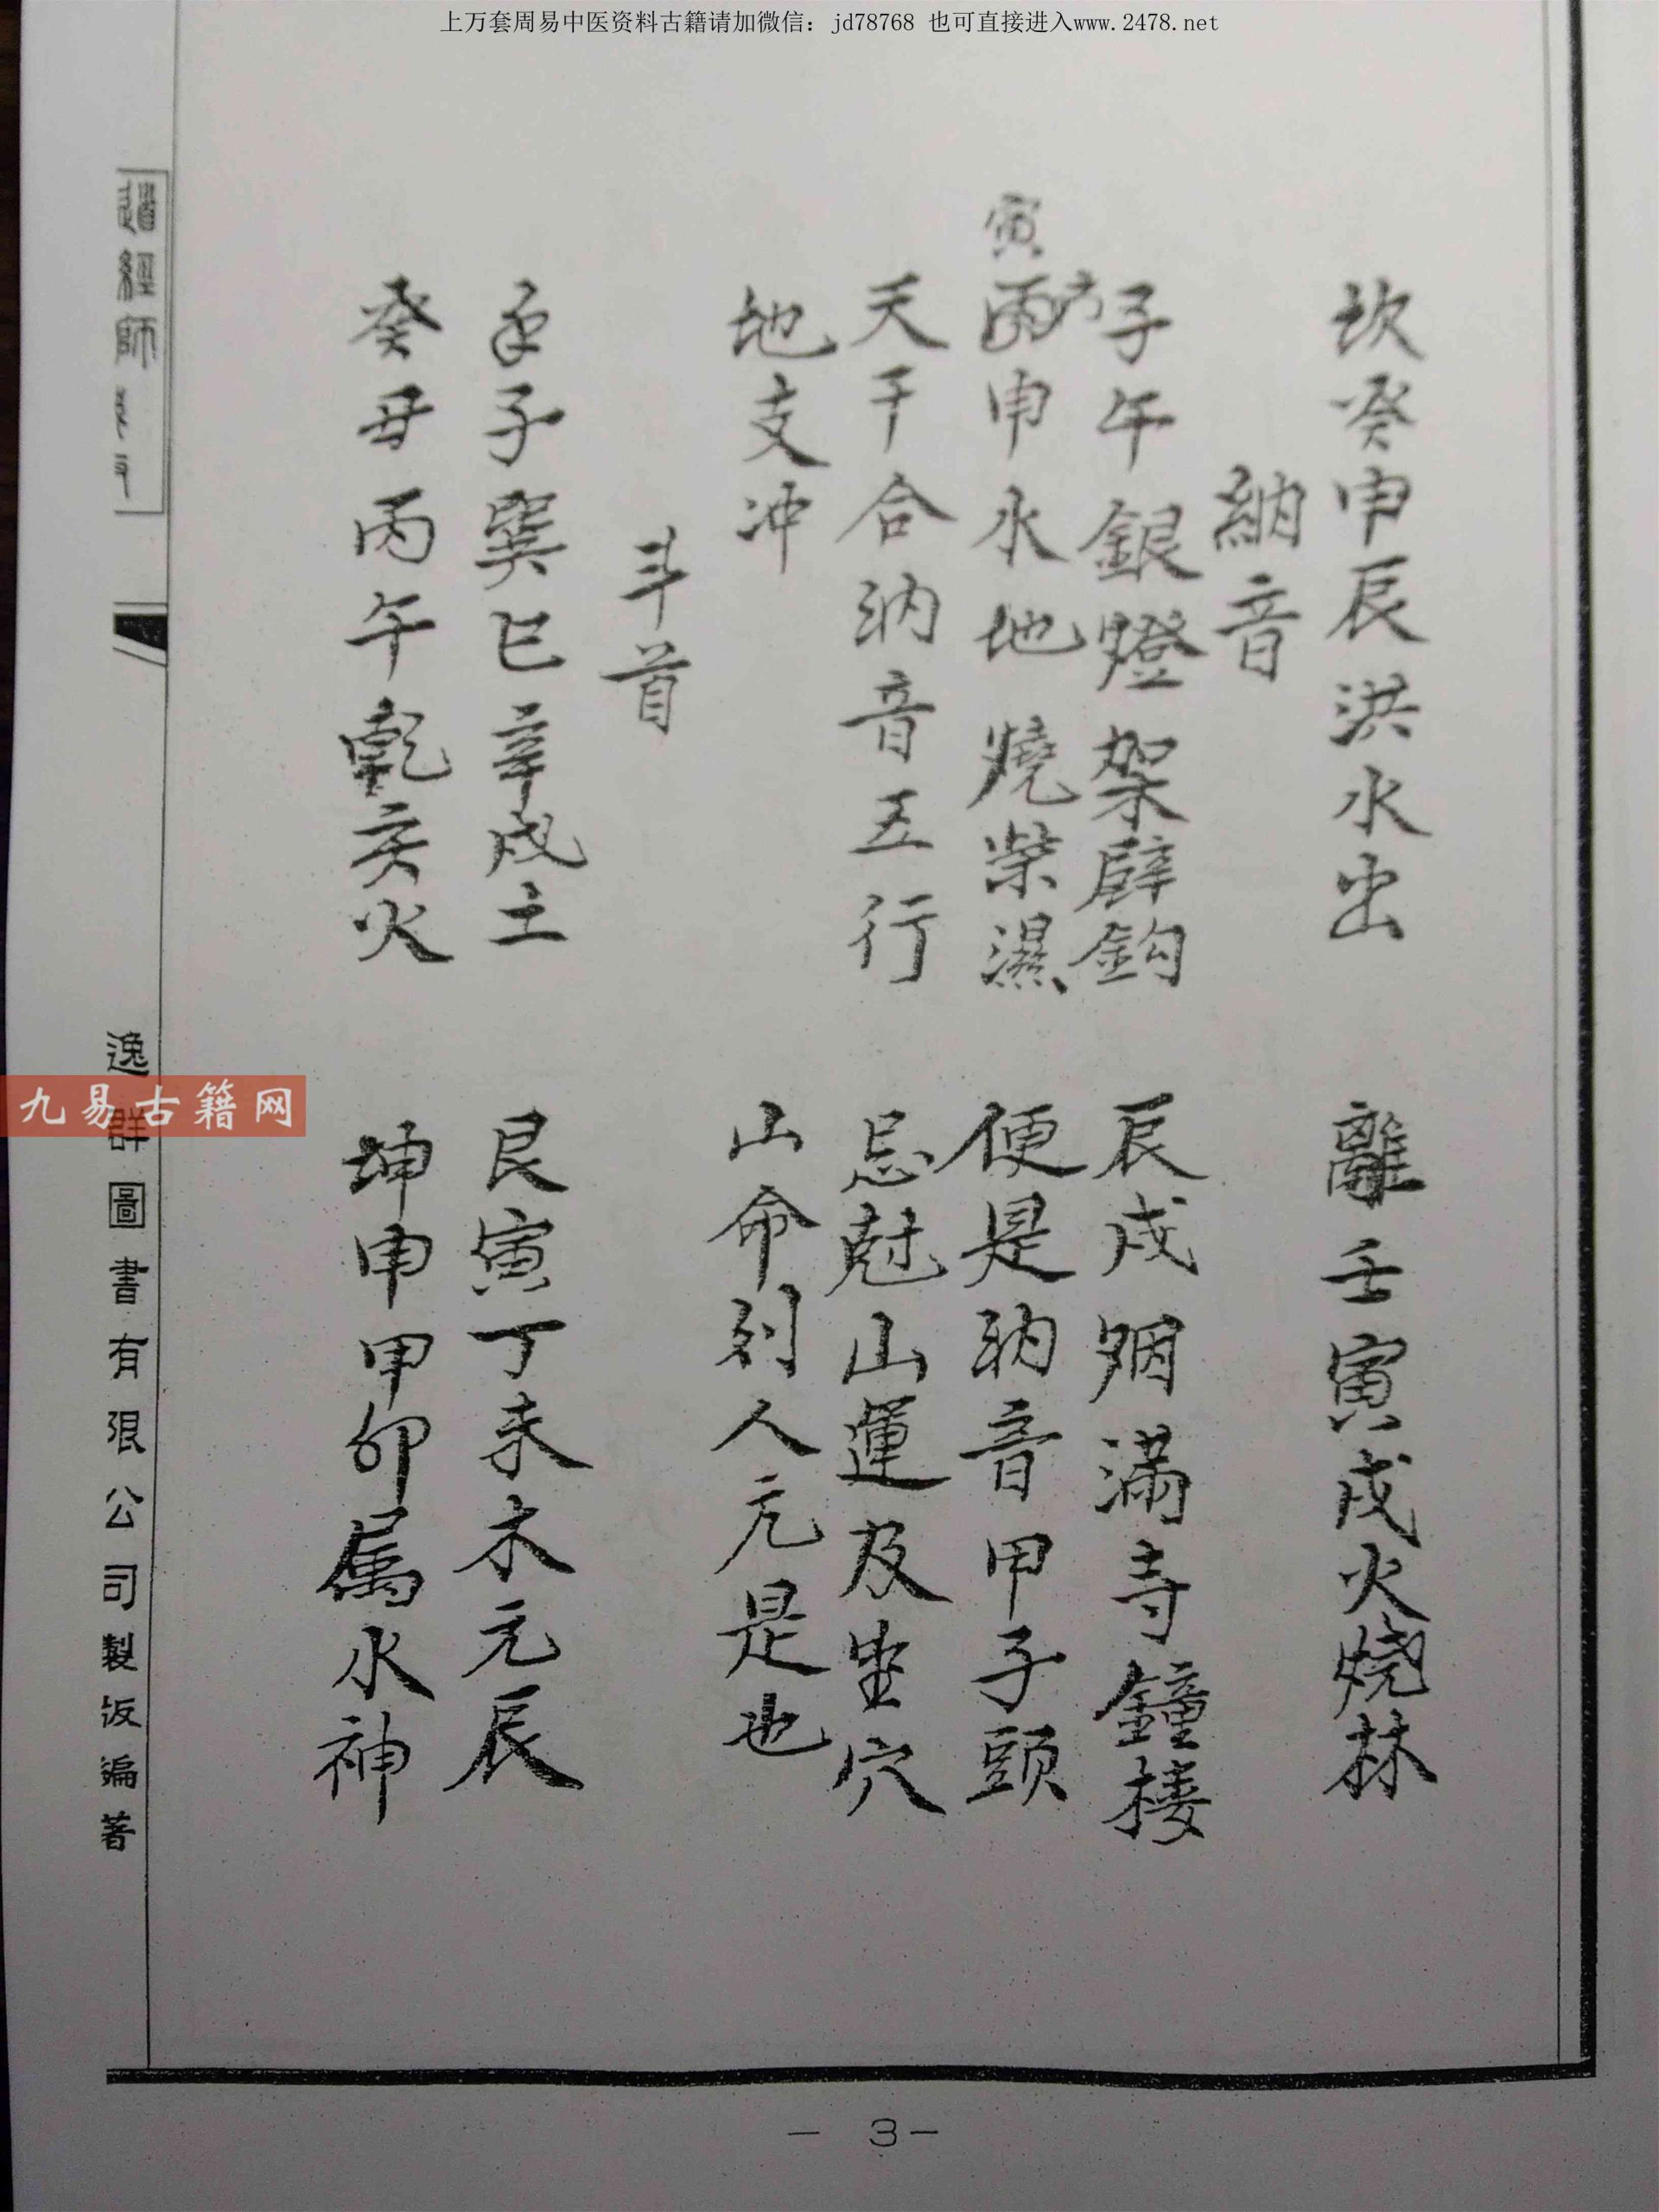 上万套周易中医资料古籍请加微信：jd78768 也可直接进入www.2478.net
坎癸申辰洪水出　離壬寅戌火燒林
納音
子午銀燈架壁鈎　辰戌烟滿寺鐘楼
寅申水地燒柴濕　便是納音甲子頭
天干合納音五行　忌尅山運及坐穴
地支冲　山命別人元是也
斗首
子巽巳辛戌土　艮寅丁未木元辰
癸丑丙午乾亥火　坤申甲卯属水神
逸群圖書有限公司製版編著
九易古籍网
- 3 -